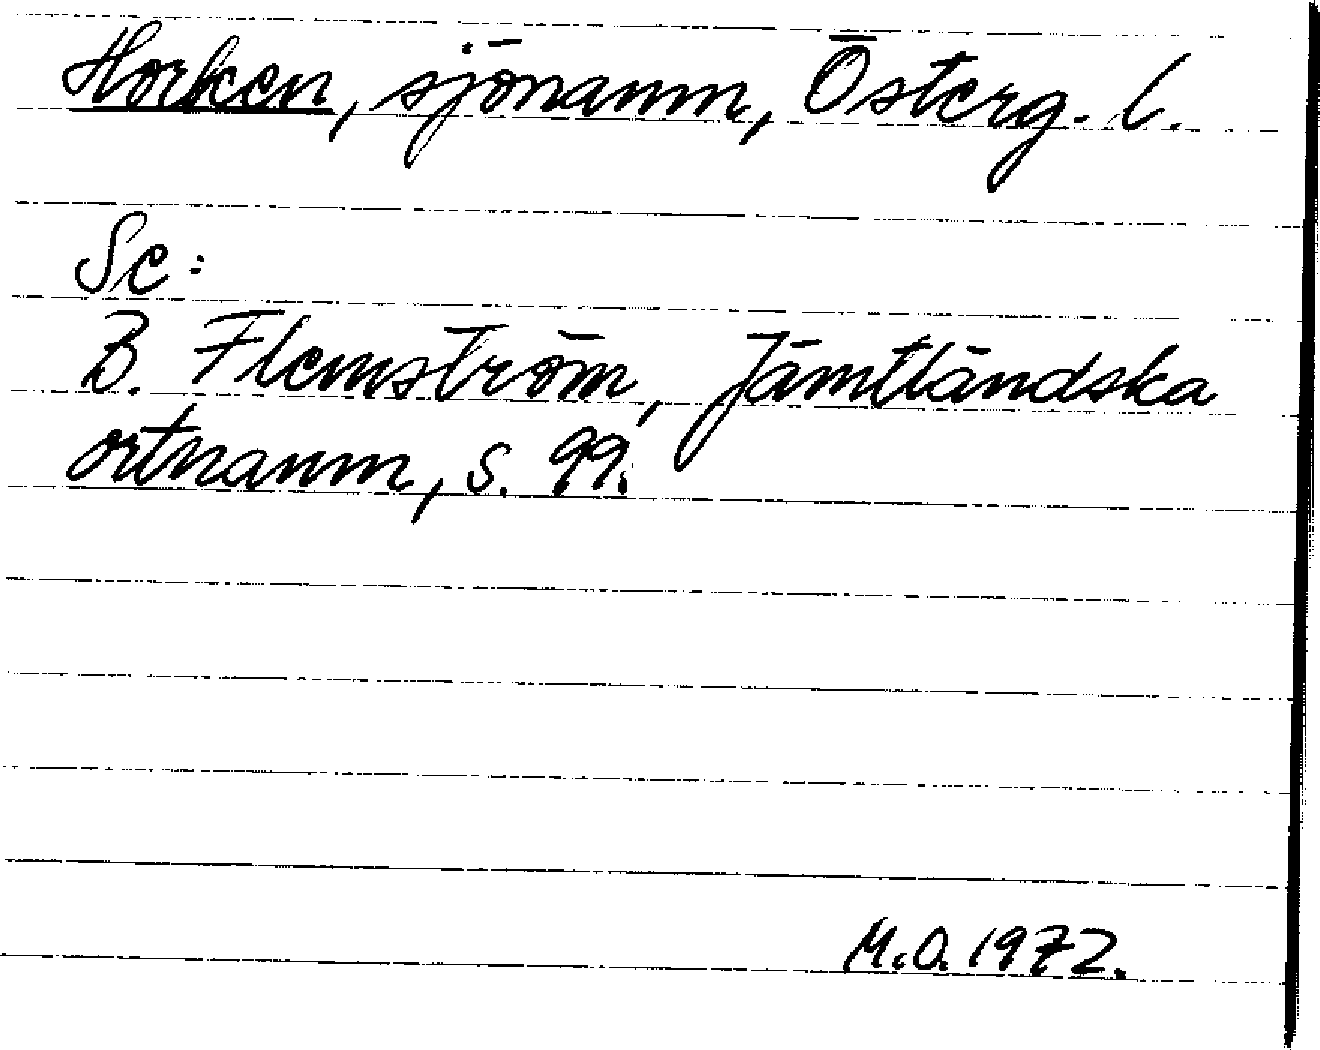 Horken, sjönamn, Österg. l.
Se:
B. Flemström, Jämtländska
ortnamn, s. 99.
M.O. 1972.